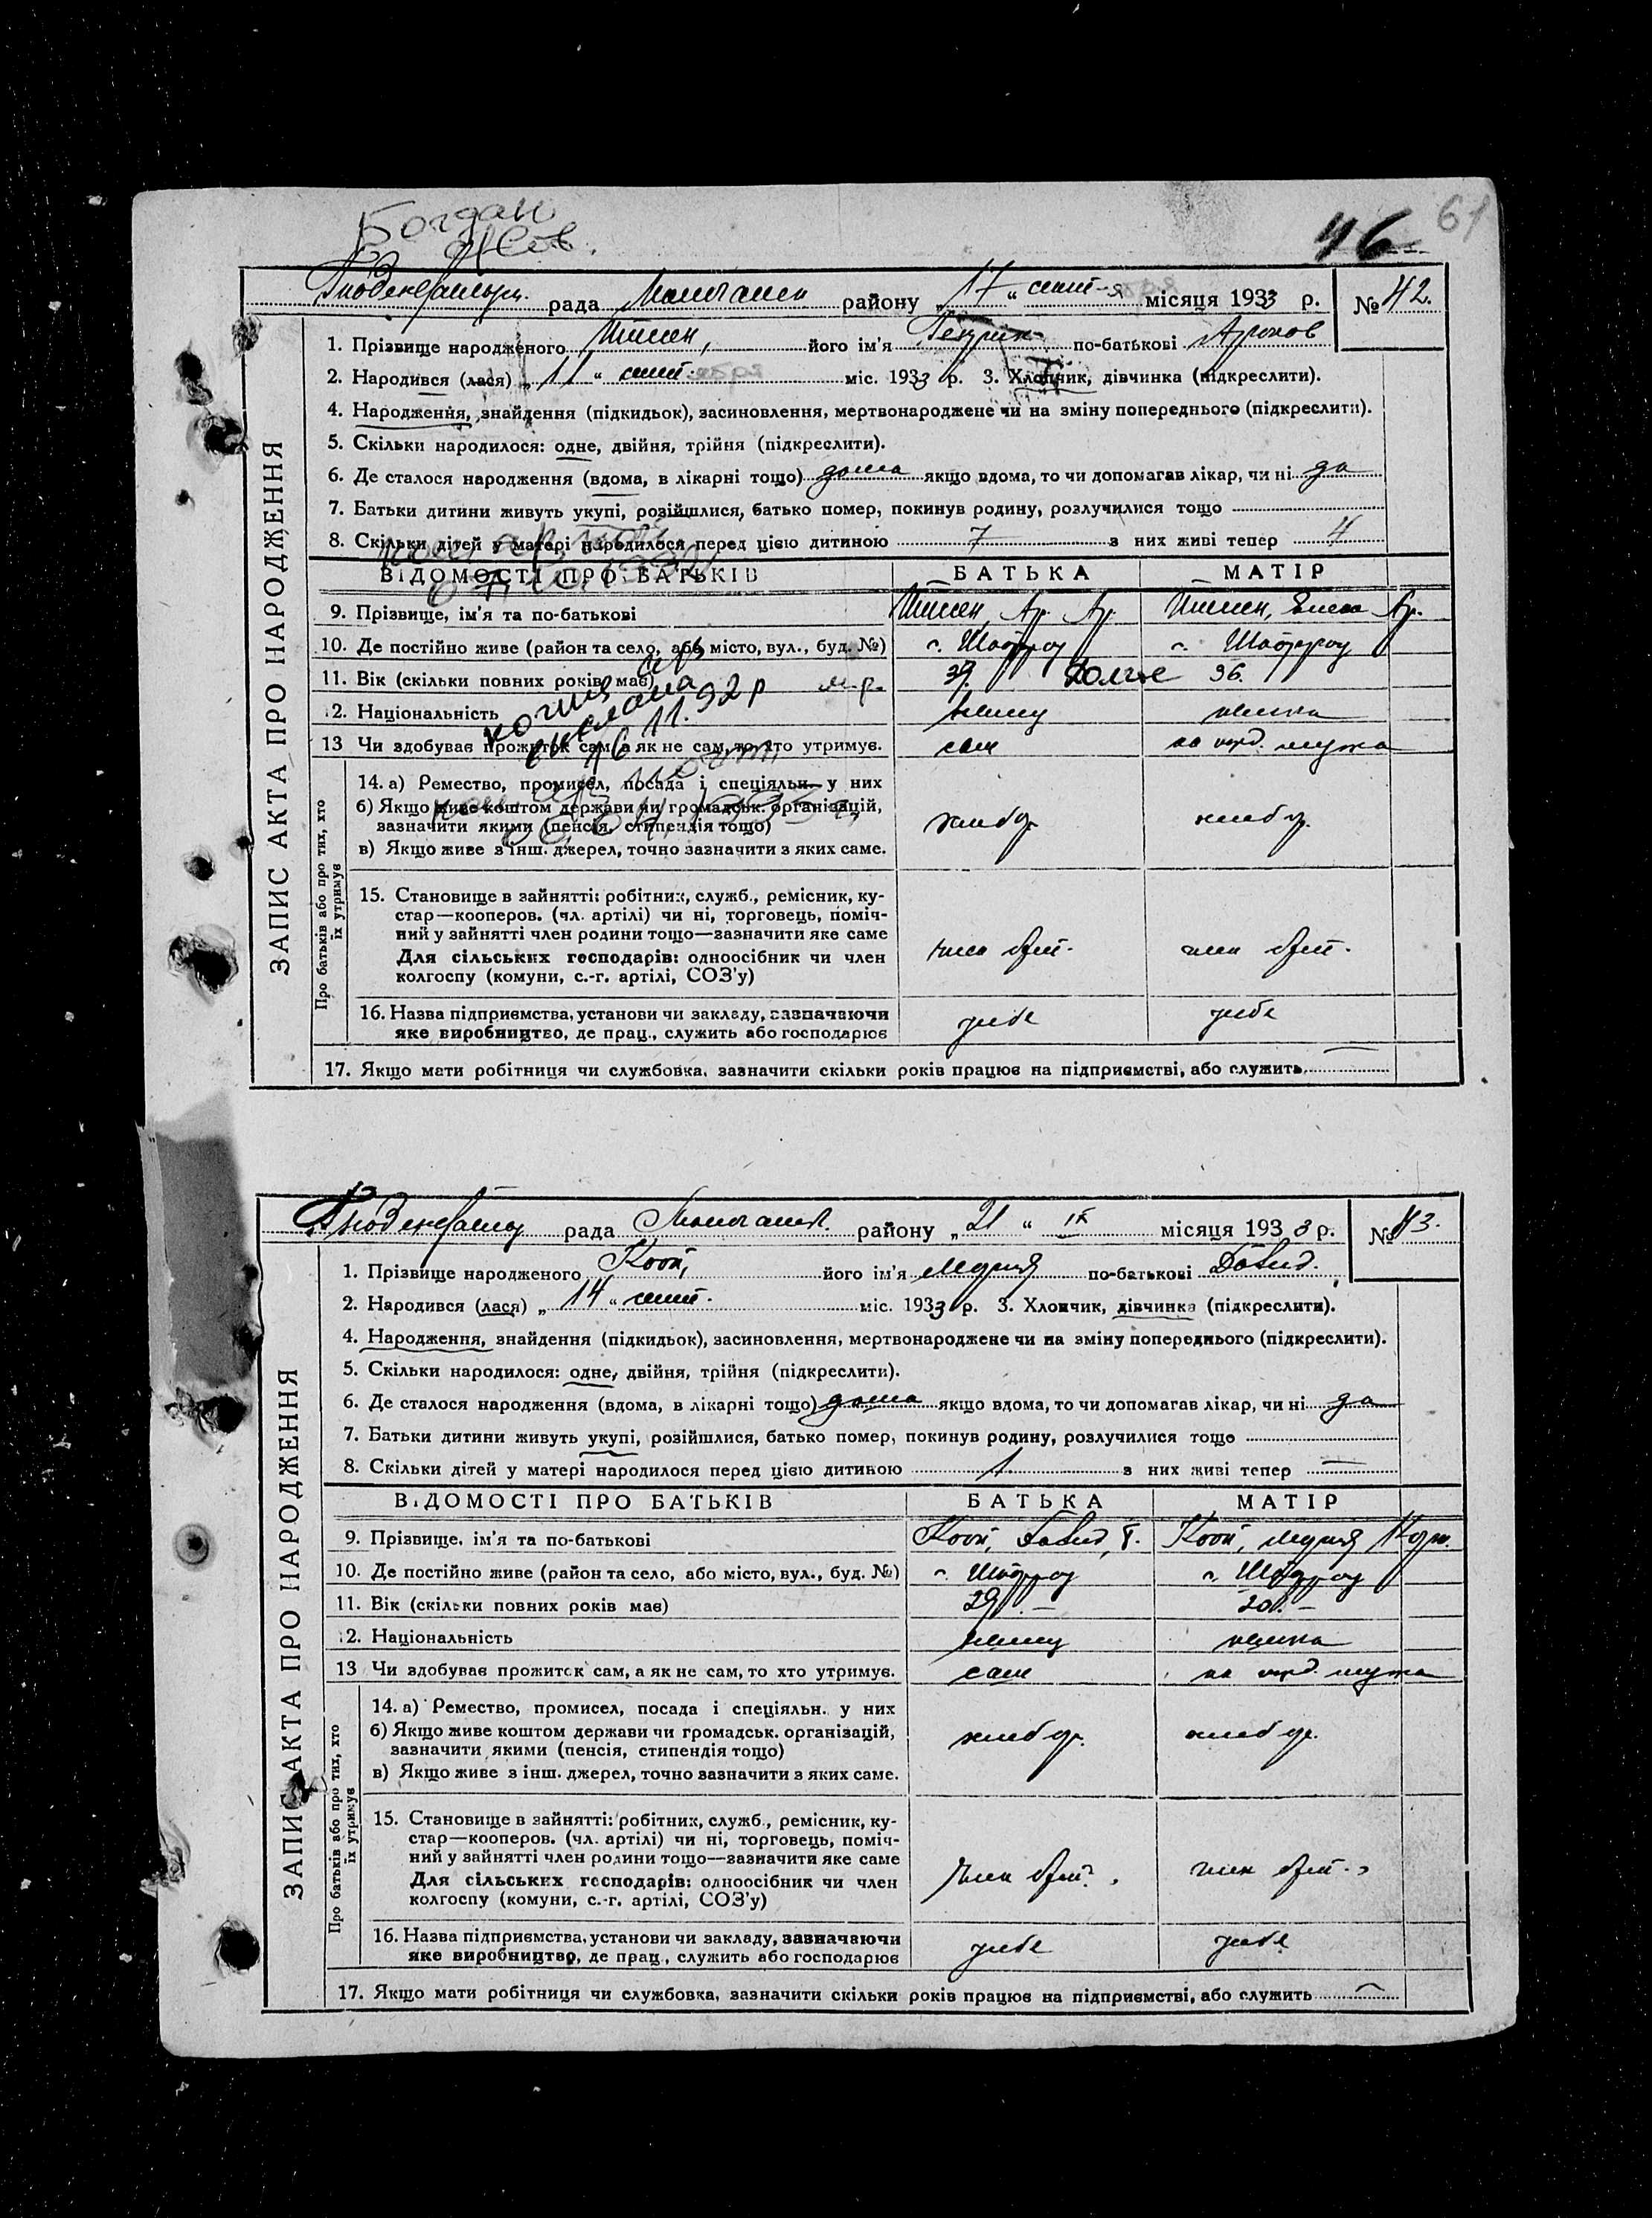 Богдан
46 61
рада району „17“ сент місяця 1933 р. № 42.
1. Прізвище народженого його ім'я Генрик по-батькові Аронов
2. Народився (лася) „11“ сент. міс. 1933 р. 3. Хлопчик, дівчинка (підкреслити).
4. Народження, знайдення (підкидьок), засиновлення, мертвонароджене чи на зміну попереднього (підкреслити).
5. Скільки народилося: одне, двійня, трійня (підкреслити).
6. Де сталося народження (вдома, в лікарні тощо) дома якщо вдома, то чи допомагав лікар, чи ні да
7. Батьки дитини живуть укупі, розійшлися, батько помер, покинув родину, розлучилися тощо
8. Скільки дітей у матері народилося перед цією дитиною 7 з них живі тепер 4
ВІДОМОСТІ ПРО БАТЬКІВ БАТЬКА МАТІР
9. Прізвище, ім'я та по-батькові
10. Де постійно живе (район та село, або місто, вул., буд. №)
11. Вік (скільки повних років має) 39 36.
12. Національність немец немка
13 Чи здобував прожиток сам, а як не сам, то хто утримує. сам на ижд. мужа
16 11.92 р
14. а) Ремество, промисел, посада і спеціяльн. у них
б) Якщо живе коштом держави чи громадськ. організацій,
зазначити якими (пенсія, стипендія тощо) хлебор. хлебор.
в) Якщо живе з інш. джерел, точно зазначити з яких саме.
15. Становище в зайнятті: робітник, служб., ремісник, ку-
стар—кооперов. (чл. артілі) чи ні, торговець, поміч-
ний у зайнятті член родини тощо—зазначити яке саме
Для сільських господарів: одноосібник чи член член арт. член арт.
колгоспу (комуни, с.-г. артілі, СОЗ'у)
16. Назва підприємства, установи чи закладу, зазначаючи
яке виробництво, де прац., служить або господарює
17. Якщо мати робітниця чи службовка, зазначити скільки років працює на підприємстві, або служить
ЗАПИС АКТА ПРО НАРОДЖЕННЯ
Про батьків або про тих, хто
їх утримує
рада району „21“ IX місяця 1933 р. № 43.
1. Прізвище народженого Кооп, його ім'я Мария по-батькові Давид.
2. Народився (лася) „14“ сент. міс. 1933 р. 3. Хлопчик, дівчинка (підкреслити).
4. Народження, знайдення (підкидьок), засиновлення, мертвонароджене чи на зміну попереднього (підкреслити).
5. Скільки народилося: одне, двійня, трійня (підкреслити).
6. Де сталося народження (вдома, в лікарні тощо) дома якщо вдома, то чи допомагав лікар, чи ні да
7. Батьки дитини живуть укупі, розійшлися, батько помер, покинув родину, розлучилися тощо
8. Скільки дітей у матері народилося перед цією дитиною 1 з них живі тепер —
ВІДОМОСТІ ПРО БАТЬКІВ БАТЬКА МАТІР
9. Прізвище, ім'я та по-батькові Кооп, Давид, Кооп, Мария
10. Де постійно живе (район та село, або місто, вул., буд. №)
11. Вік (скільки повних років має) 29 20
12. Національність немец немка
13 Чи здобував прожиток сам, а як не сам, то хто утримує. сам на ижд. мужа
14. а) Ремество, промисел, посада і спеціяльн. у них
б) Якщо живе коштом держави чи громадськ. організацій,
зазначити якими (пенсія, стипендія тощо) хлебор. хлебор.
в) Якщо живе з інш. джерел, точно зазначити з яких саме.
15. Становище в зайнятті: робітник, служб., ремісник, ку-
стар—кооперов. (чл. артілі) чи ні, торговець, поміч-
ний у зайнятті член родини тощо—зазначити яке саме
Для сільських господарів: одноосібник чи член член арт. член арт.
колгоспу (комуни, с.-г. артілі, СОЗ'у)
16. Назва підприємства, установи чи закладу, зазначаючи
яке виробництво, де прац., служить або господарює
17. Якщо мати робітниця чи службовка, зазначити скільки років працює на підприємстві, або служить
ЗАПИС АКТА ПРО НАРОДЖЕННЯ
Про батьків або про тих, хто
їх утримує